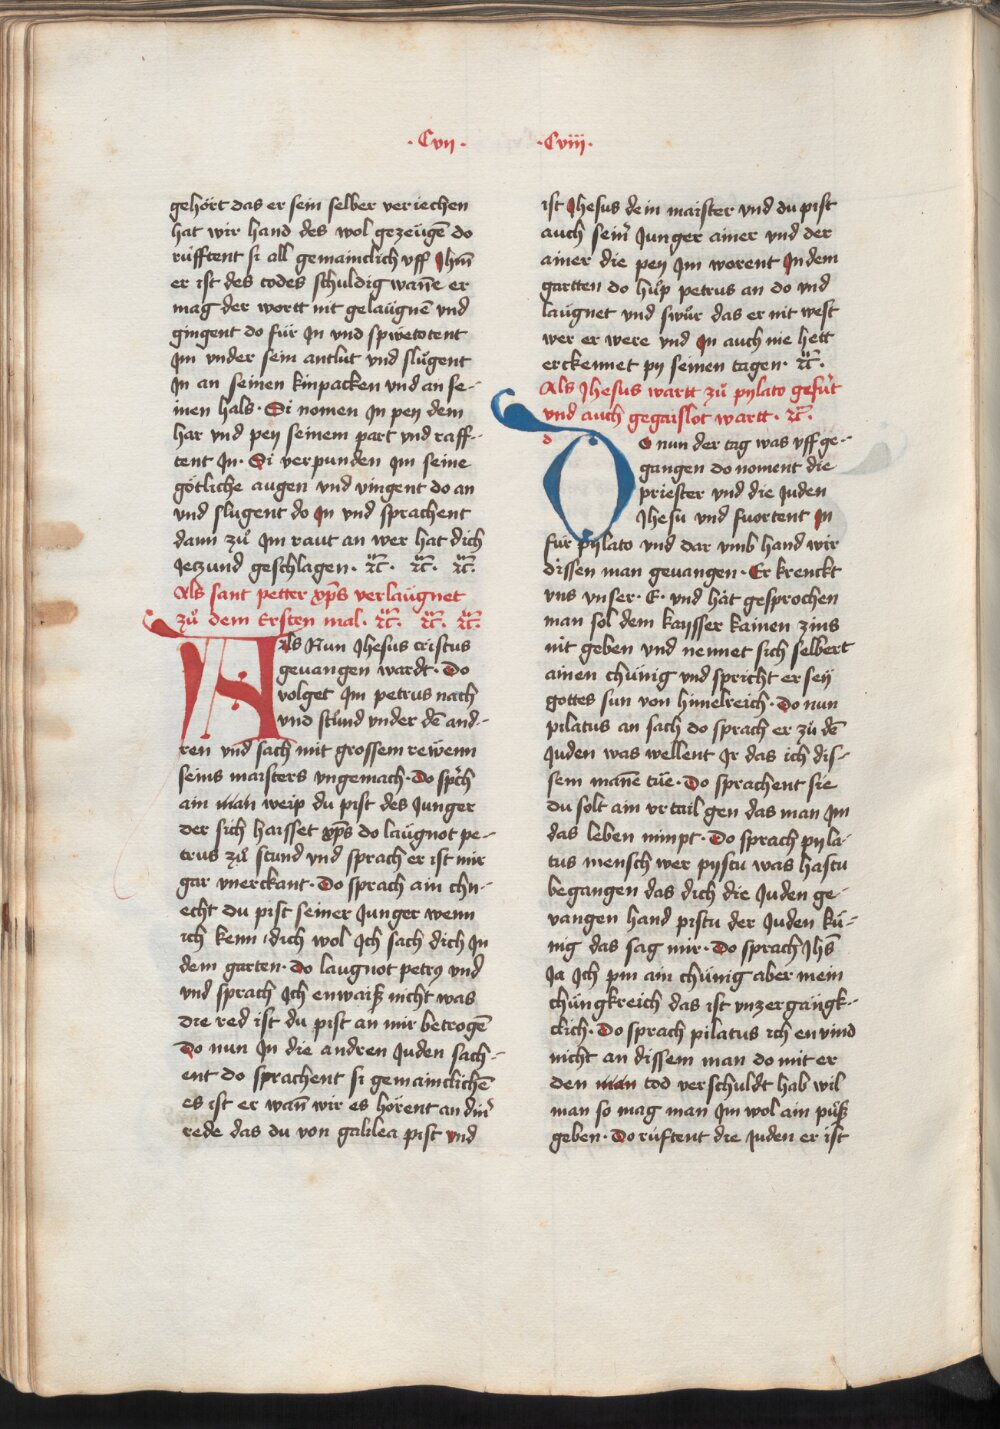 ·Cvii·
gehört das er sein selber veriechen
hat wir hand des wol gezeügē do
rüfftent si all gemainclich vff Jhm̄
er ist des todes schuldig wan̄e er
mag der wortt nit gelaügnē vnd
gingent do für Jn vnd spiwetotent
Jm vnder sein antlut vnd slügent
Jn an seinen kinpacken vnd an se-
inen hals· Si nomen Jn pey dem
har vnd pey seinem part vnd raff-
tent Jn· Si verpunden Jm seine
götliche augen vnd vingent do an
vnd slugent do Jn vnd sprachent
dann zů Jm raut an wer hat dich
Jetzund geschlagen· ꝛc̄· ꝛc̄· ꝛc̄
Als sant petter xp̄s verlaügnet
zů dem Ersten mal· ꝛc̄· ꝛc̄· ꝛc̄·
Als Nun Jhesus cristus
geuangen wardt· Do
volget Jm petrus nach
vnd stůnd vnder dē and-
ren vnd sach mit grossem rewenn
seins maisters vngemach· Do sp̄ch
ain man weip du pist des Junger
der sich haisset xp̄s do laügnot pe-
trus zů stund vnd sprach er ist mir
gar vnerckant· Do sprach ain chn-
echt du pist seiner Junger wenn
ich kenn dich wol Jch sach dich Jn
dem garten· Do laugnot petrꝰ vnd
vnd sprach Jch enwaiß nicht was
die red ist du pist an mir betrogē
Do nun Jn die andren Juden sach-
ent do sprachent si gemainclichē
es ist er wan̄ wir es hörent an din̄
rede das du von galilea pist vnd
·Cviii·
ist Jhesus dein maister vnd du pist
auch sein̄ Junger ainer vnd der
ainer die pey Jm worent Jn dem
gartten do hůb petrus an do vnd
laügnet vnd swůr das er nit west
wer er were vnd Jn auch nie hett
erckennet py seinen tagen· ꝛc̄·
Als Jhesus wartt zů pylato gefůrt
vnd auch gegaislot wartt· ꝛc̄·
Do nun der tag was vff ge-
gangen do noment die
priester vnd die Juden
Jhesu vnd fuortent Jn
für pylato vnd dar vmb hand wir
dissen man geuangen· Er krenckt
vns vnser· E· vnd hät gesprochen
man sol dem kaysser kainen zins
nit geben vnd nennet sich selbert
ainen chünig vnd spricht er sey
gottes sun von himelreich· Do nun
pilatus an sach do sprach er zů dē
Juden was wellent Jr das ich dis-
sem man̄e tüe· Do sprachent sie
du solt ain vrtail gen das man Jm
das leben nimpt· Do sprach pyla-
tus mensch wer pystu was hastu
begangen das dich die Juden ge-
uangen hand pistu der Juden kü-
nig das sag mir· Do sprach Jhs̄
Ja Jch pin ain chünig aber mein
chüngkreich das ist vnzergängk-
clich· Do sprach pilatus ich en vind
nicht an dissem man do mit er
den man tod verschuldt hab wil
man so mag man Jm wol ain půß
geben· Do rüftent die Juden er ist